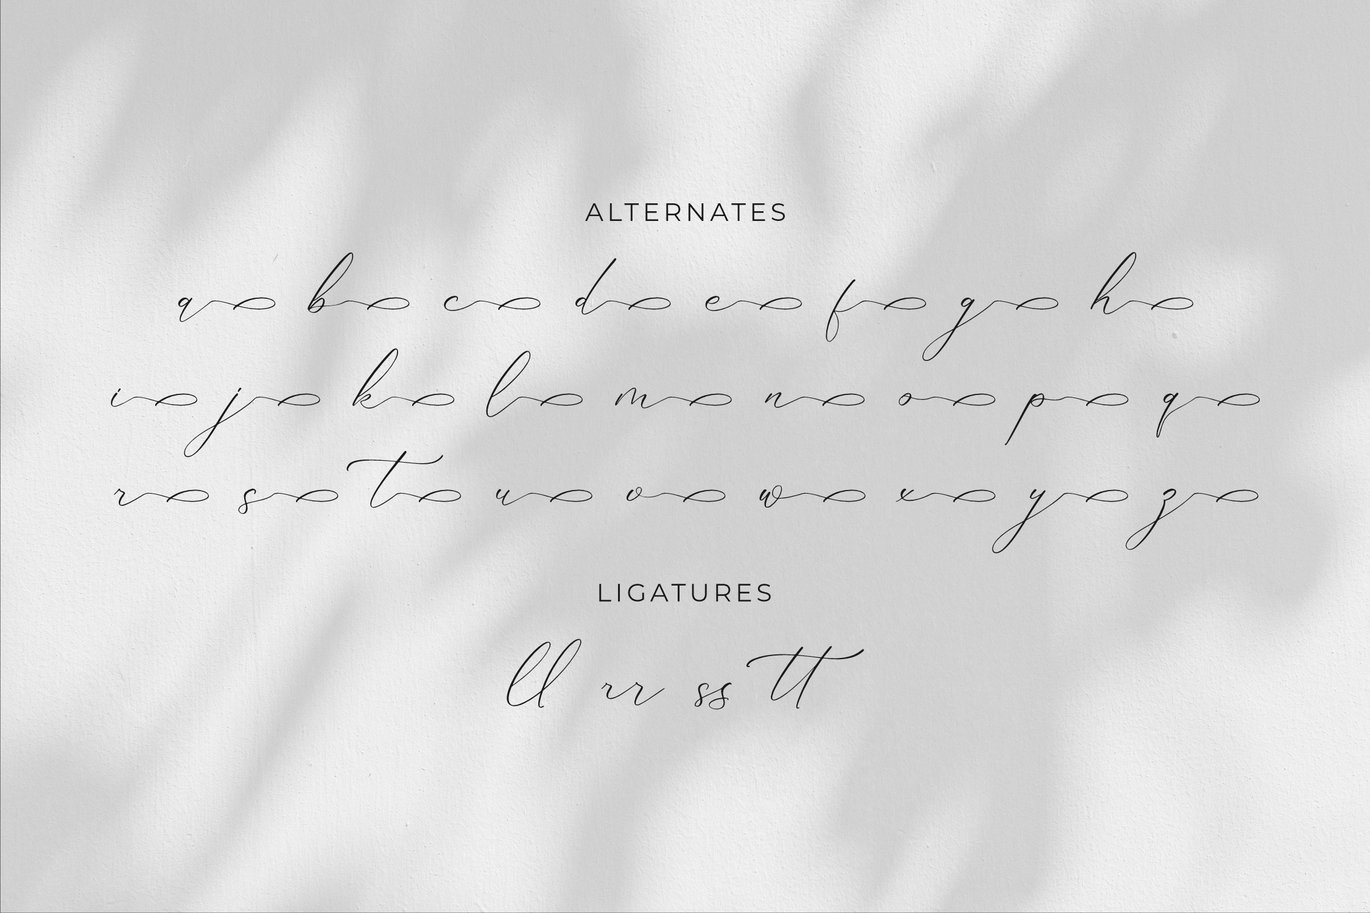 ALTERNATES
a b c d e f g h
i j k l m n o p q
r s t u v w x y z
LIGATURES
ll rr ss tt